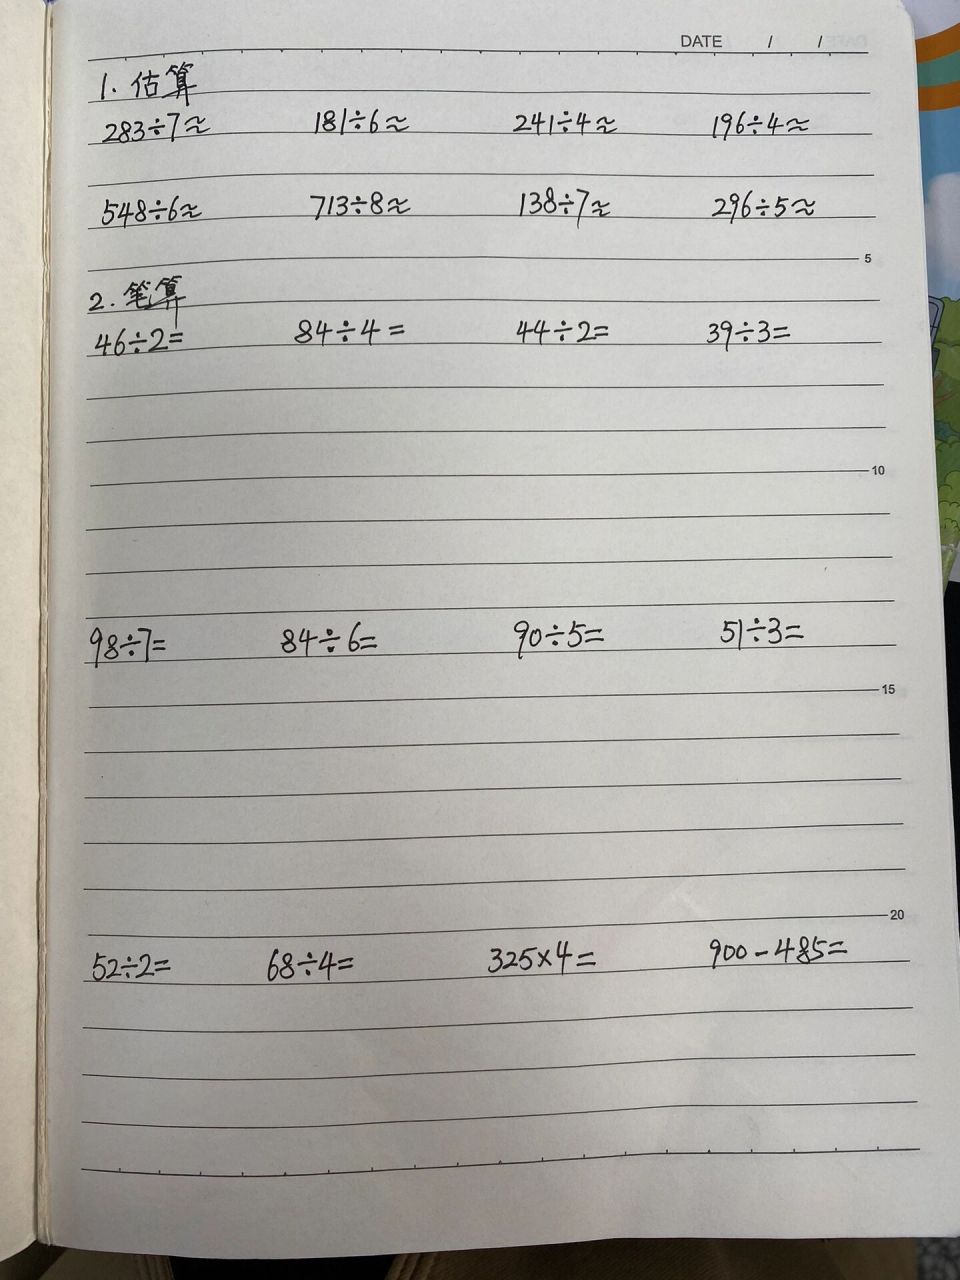 DATE / /
1. 估算
283÷7≈ 181÷6≈ 241÷4≈ 196÷4≈
548÷6≈ 713÷8≈ 138÷7≈ 296÷5≈
5
2. 笔算
46÷2= 84÷4= 44÷2= 39÷3=
10
98÷7= 84÷6= 90÷5= 51÷3=
15
20
52÷2= 68÷4= 325×4= 900-485=